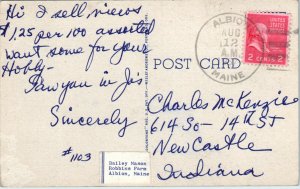 Hi I sell views
$1.25 per 100 assorted
want some for your
Hobby.
Saw you in
Sincerely
#1103
Bailey Mason
Robbins Farm
Albion, Maine
POST CARD
ALBION
AUG
12
AM
MAINE
UNITED STATES
2 CENTS 2
Charles McKenzie
614 So - 14th St
New Castle
Indiana